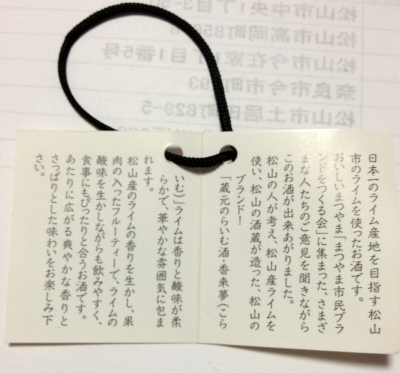 日本一のライム産地を目指す松山
市のライムを使ったお酒です。
おいしいまつやま「まつやま市民ブラ
ンドをつくる会」に集まった、さまざ
まな人たちのご意見を聞きながら
このお酒が出来あがりました。
松山の人が考え、松山産ライムを
使い、松山の酒蔵が造った、松山の
ブランド!
「蔵元のらいむ酒・香来夢(こら
いむ)」ライムは香りと酸味が柔
らかで、華やかな雰囲気に包ま
れます。
松山産のライムの香りを生かし、果
肉の入ったフルーティーで、ライムの
酸味を生かしながらも飲みやすく、
食事にもぴったりと合うお酒です。
あたりに広がる爽やかな香りと
さっぱりとした味わいをお楽しみ下
さい。